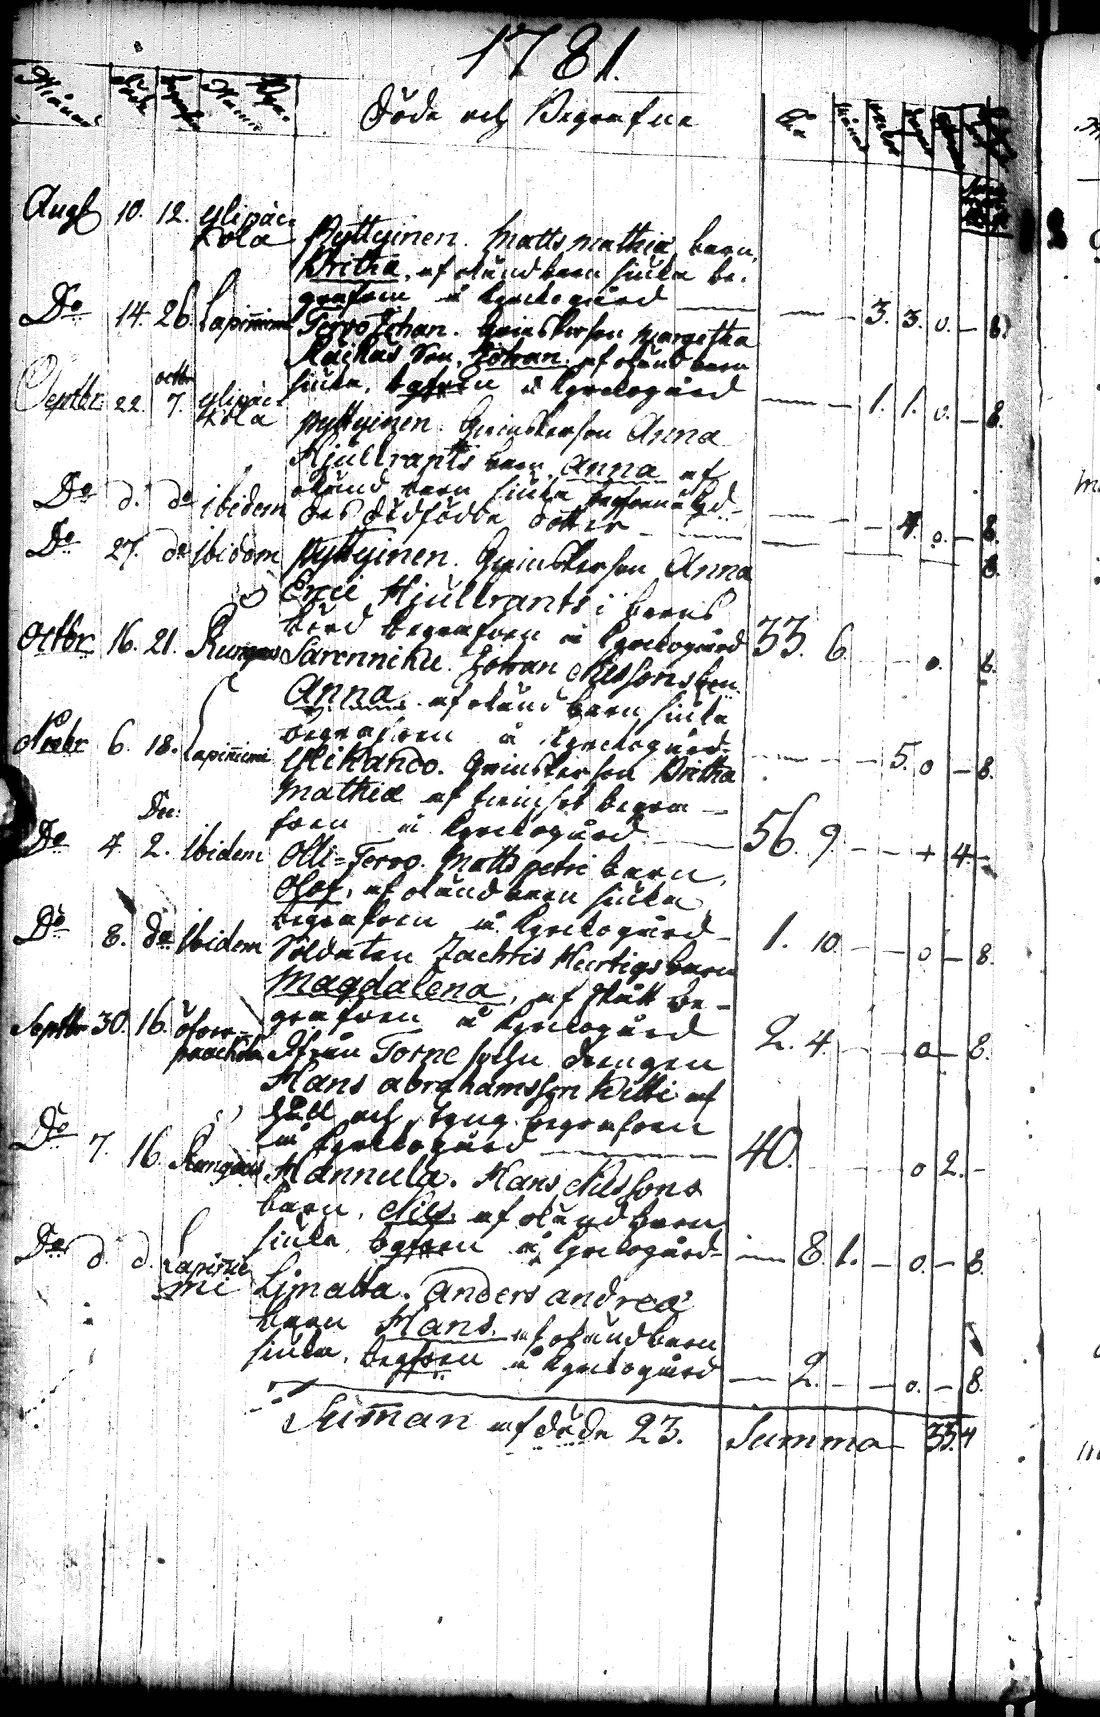 1781.
Månad Döde Begrafne Namn Byar
Döde och Begrafne
År
Augt 10. 12. Ylipää
kola Pyttyinen. Matts Mathiæ barn,
Britha, af okänd barn siuka be-
grafven å kyrkogård — — — 3. 3. 0. — 8.
Do 14. 26. Lapinniemi Tervo Johan. Qvinsperson Margetha
Son, Johan af okänd barn
siuka, begfven å kyrkogård — — 1. 1. 0. — 8.
Septbr 22. octbr 7. Ylipää
kola Pyttyinen. Qvinspersson Anna
Hjulkrants barn, Anna af
okänd barn siuka
Do d. do ibidem Des dödfödde dotter — — — 4. 0. — 8.
Do 27. do Ibidem Pyttyinen. Qvinspersson Anna — 8.
Erici Hjulkrants i barns
börd begrafven å kyrkogård 33. 6. — — 0. 6.
Octbr 16. 21. Kungäs Sarenniku. Johan Nilssons barn
Anna af okänd barn siuka
begrafven å kyrkogård — — — 5. 0 — 8.
Novbr 6. 18. Lapiniemi Ylikando. Qvinspersson Britha
Mathiæ af begra-
fven å kyrkogård — 56. 9. — — + 4. —
Do 4 Dec: 2. Ibidem Olli-Tervo. Matts Petri barn,
Olof, af okänd barn siuka
begrafven å kyrkogård — 1. 10 — — 0 — 8.
Do 8. do Ibidem Soldaten Zachris Hurtigs barn
Magdalena, af be-
grafven å kyrkogård 2. 4. — — 0 — 8.
Septbr 30. 16. Ifrån Torne sochn drengen
Hans Abrahamsson Witti af
håll och styng begrafven
å kyrkogård — 40. — — 0 2. —
Do 7. 16. Kungäs Hannula. Hans Nilssons
barn, Nils, af okänd barn
siuka, begfven å kyrkogård — — 8. 1. — 0. — 8.
Do d. d. Lapinie
mi Lijmatta. Anders Andreæ
barn Hans, af okänd barn
siuka, begfven å kyrkogård — 2. — — 0. — 8.
Summan af döde 23. Summa — 33. 4